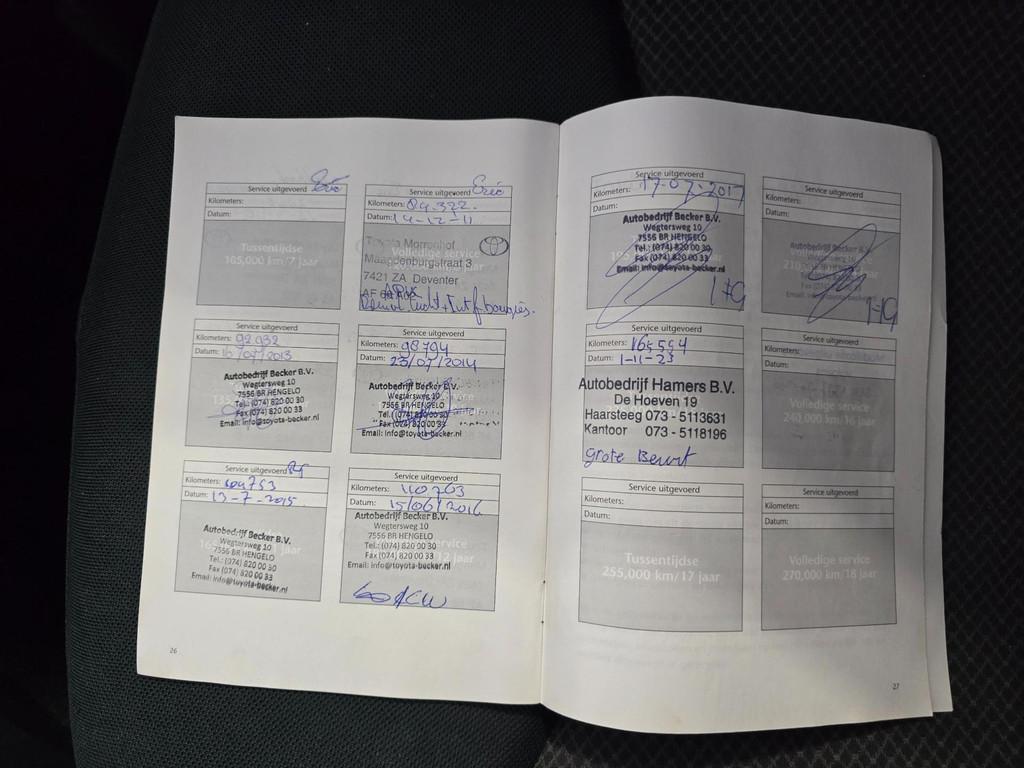 Service uitgevoerd
Kilometers:
Datum:
Tussentijdse
105,000 km/7 jaar
Service uitgevoerd
Kilometers: 84.322.
Datum: 14-12-11
Toyota Morrenhof
Volledige service
Maagdenburgstraat 3
7421 ZA Deventer
Service uitgevoerd
Kilometers: 92932
Datum: 16/07/2013
Autobedrijf Becker B.V.
Wegtersweg 10
7556 BR HENGELO
Tel.: (074) 820 00 30
Fax (074) 820 00 33
Email: info@toyota-becker.nl
Service uitgevoerd
Kilometers: 98794
Datum: 23/07/2014
Autobedrijf Becker B.V.
Wegtersweg 10
7556 BR HENGELO
Tel.: (074) 820 00 30
Fax (074) 820 00 33
Email: info@toyota-becker.nl
Service uitgevoerd
Kilometers: 104753
Datum: 13-7-2015
Autobedrijf Becker B.V.
Wegtersweg 10
7556 BR HENGELO
Tel.: (074) 820 00 30
Fax (074) 820 00 33
Email: info@toyota-becker.nl
Service uitgevoerd
Kilometers: 110703
Datum: 15/06/2016
Autobedrijf Becker B.V.
Wegtersweg 10
7556 BR HENGELO
Tel.: (074) 820 00 30
Fax (074) 820 00 33
Email: info@toyota-becker.nl
26
Service uitgevoerd
Kilometers: 17-07-2017
Datum:
Autobedrijf Becker B.V.
Wegtersweg 10
7556 BR HENGELO
Tel.: (074) 820 00 30
Fax (074) 820 00 33
Email: info@toyota-becker.nl
Service uitgevoerd
Kilometers:
Datum:
Service uitgevoerd
Kilometers: 165554
Datum: 1-11-23
Autobedrijf Hamers B.V.
De Hoeven 19
Haarsteeg 073 - 5113631
Kantoor 073 - 5118196
Grote Beurt
Kilometers:
Datum:
Volledige service
240,000 km/16 jaar
Service uitgevoerd
Kilometers:
Datum:
Tussentijdse
255,000 km/17 jaar
Service uitgevoerd
Kilometers:
Datum:
Volledige service
270,000 km/18 jaar
27